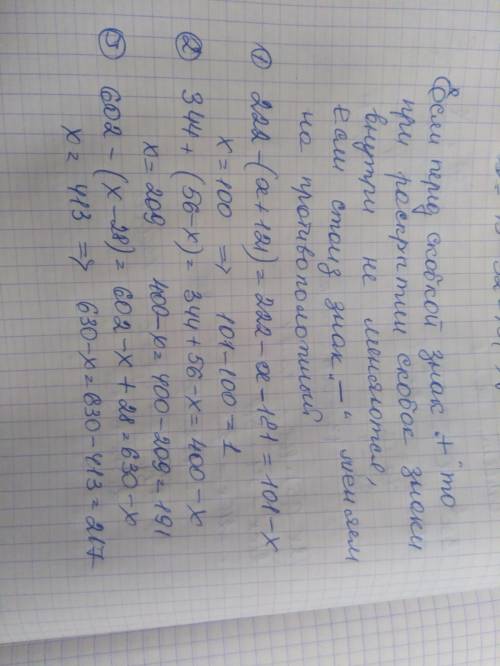 Если перед скобкой знак „+“ то
при раскрытии скобок знаки
внутри не меняются,
если стоит знак „—“ меняем
на противоположный
① 222 - (x + 121) = 222 - x - 121 = 101 - x
x = 100 ⇒ 101 - 100 = 1
② 344 + (56 - x) = 344 + 56 - x = 400 - x
x = 209 400 - x = 400 - 209 = 191
⑤ 602 - (x - 28) = 602 - x + 28 = 630 - x
x = 413 ⇒ 630 - x = 630 - 413 = 217